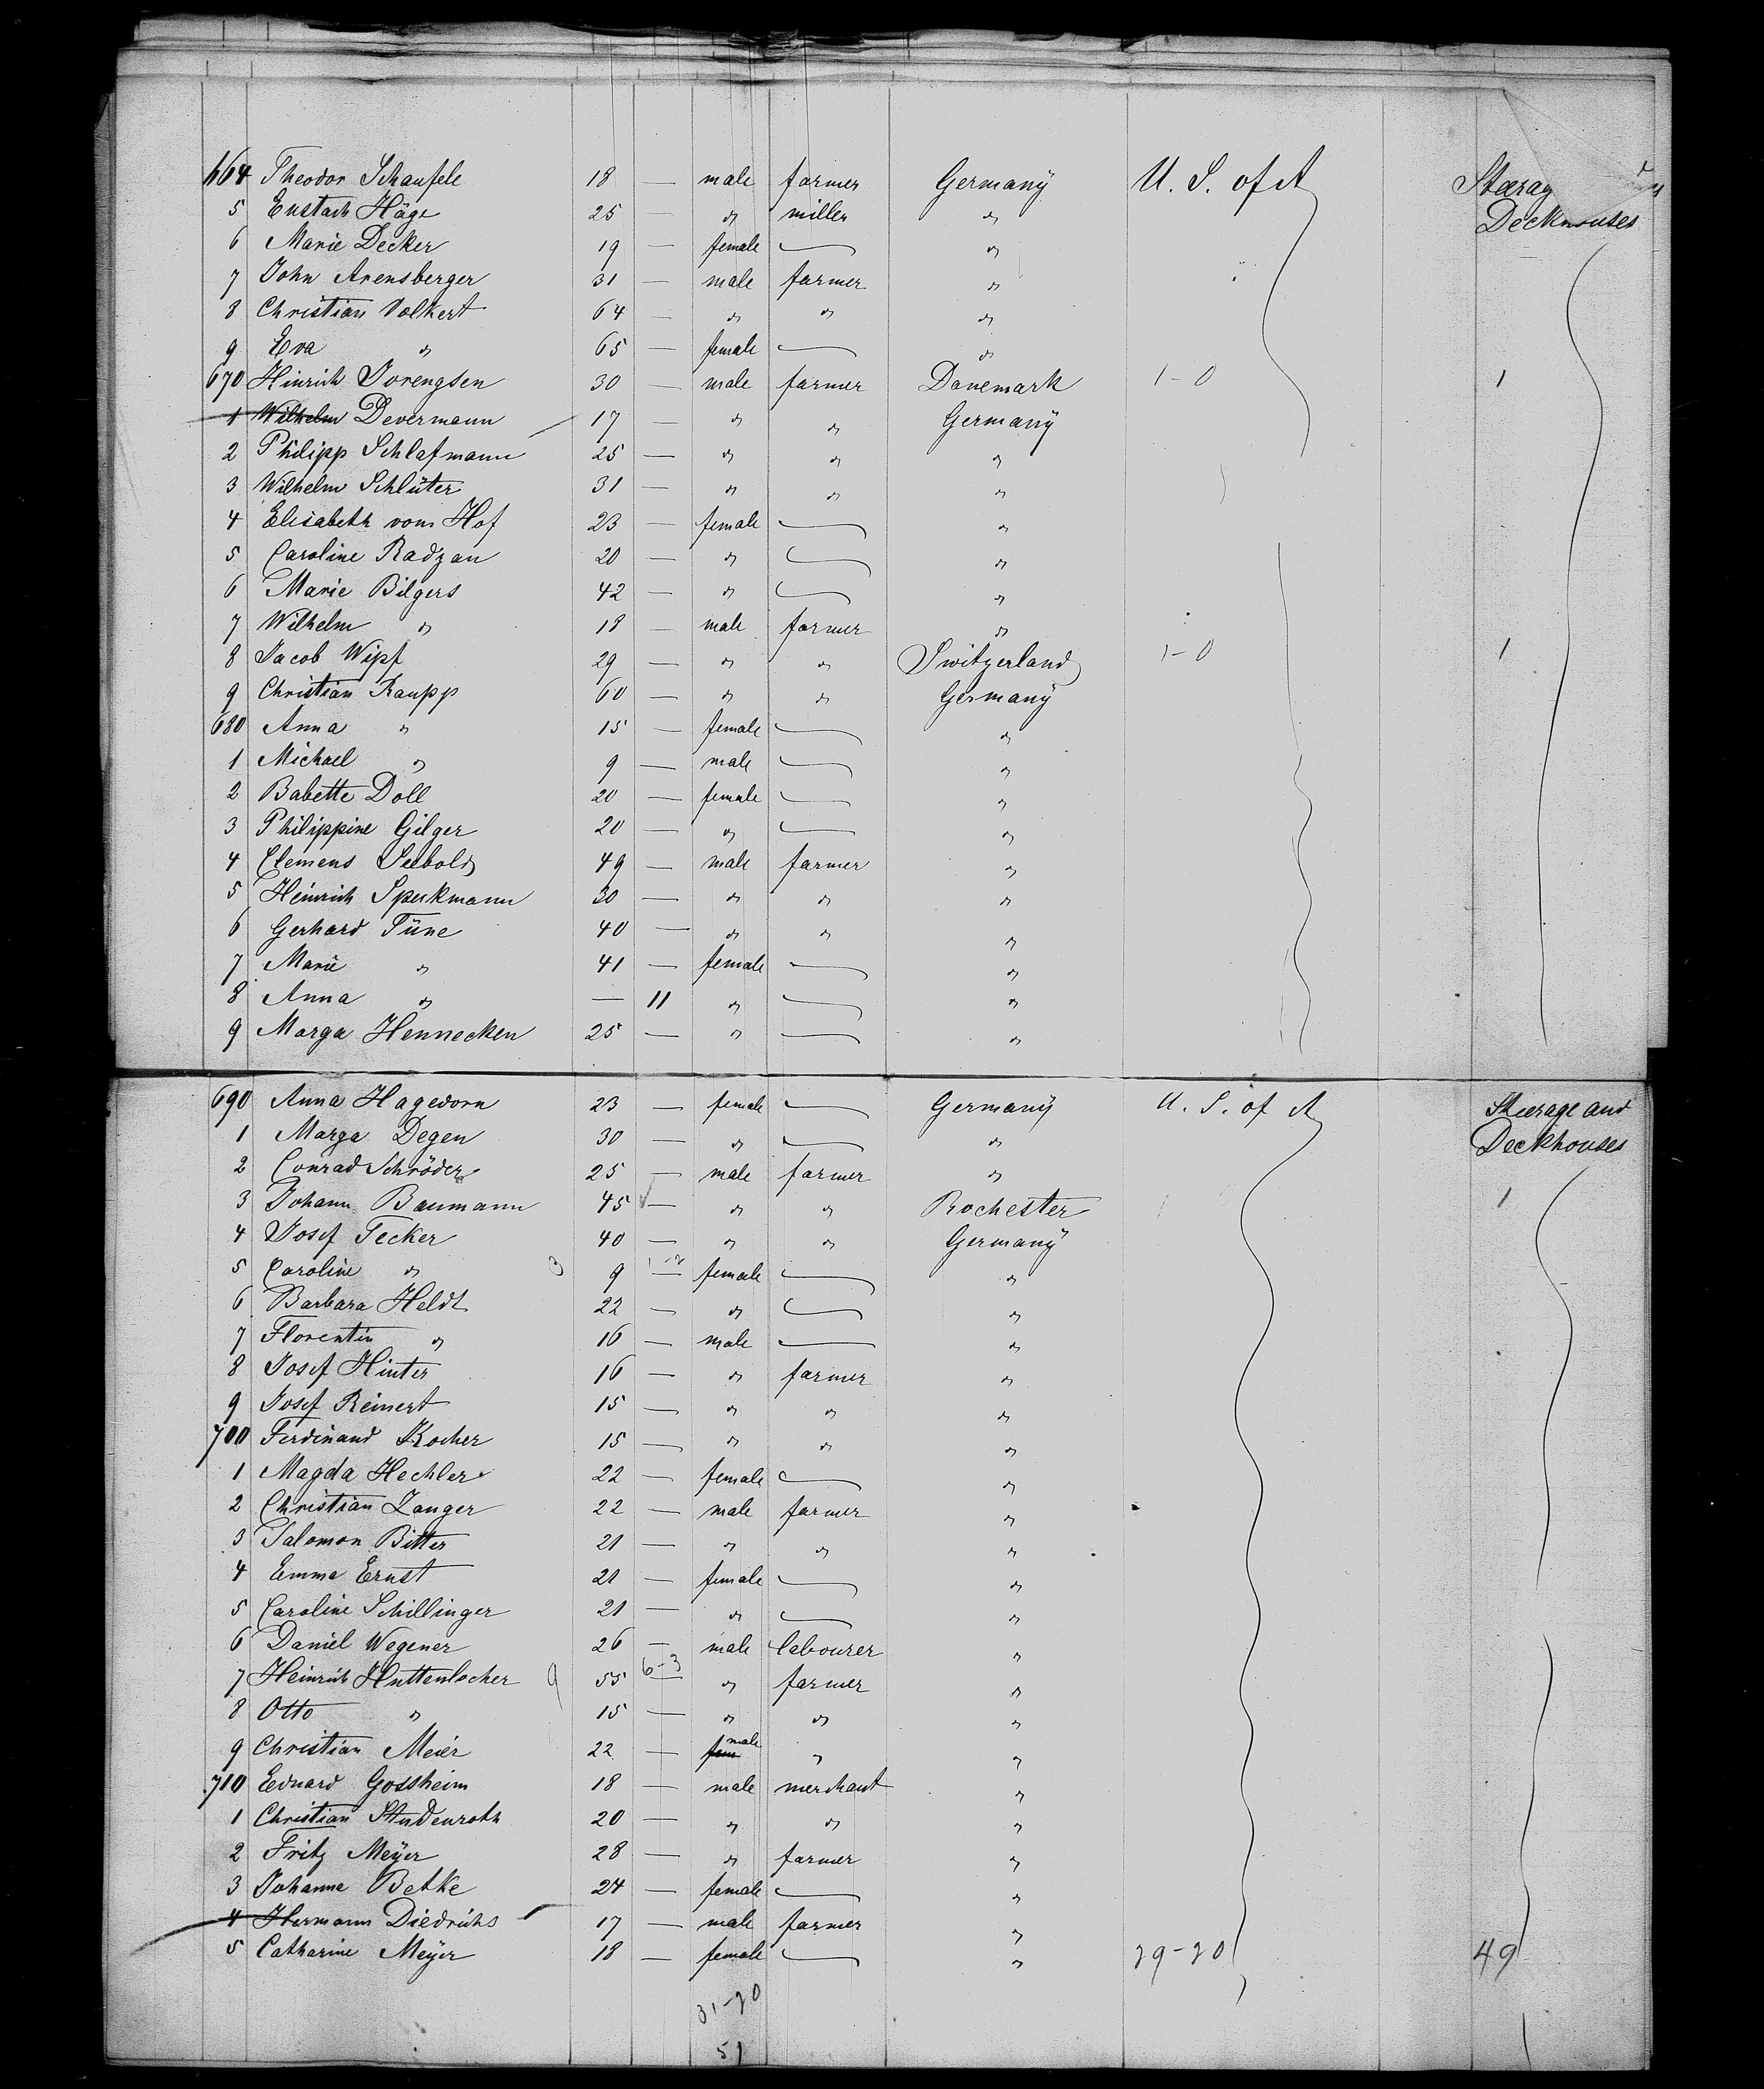 664 Theodor Schaufele 18 — male farmer Germany U. S. of A Steerag
5 Eustach Häge 25 — " miller " Deckhouses
6 Marie Decker 19 — female — "
7 John Arensberger 31 — male farmer "
8 Christian Volkert 64 — " " "
9 Eva " 65 — female — "
670 Hinrich Jorengsen 30 — male farmer Danemark 1-0 1
1 Wilhelm Devermann 17 — " " Germany
2 Philipp Schlafmann 25 — " " "
3 Wilhelm Schlüter 31 — " " "
4 Elisabeth vom Hof 23 — female — "
5 Caroline Radzan 20 — " — "
6 Marie Bilgers 42 — " — "
7 Wilhelm " 18 — male farmer "
8 Jacob Wipf 29 — " " Switzerland 1-0 1
9 Christian Raupp 60 — " " Germany
680 Anna " 15 — female — "
1 Michael " 9 — male — "
2 Babette Doll 20 — female — "
3 Philippine Gilger 20 — " — "
4 Clemens Seebold 49 — male farmer "
5 Heinrich Speckmann 30 — " " "
6 Gerhard Tüne 40 — " " "
7 Marie " 41 — female — "
8 Anna " — 11 " — "
9 Marga Hennecken 25 — " — "
690 Anna Hagedorn 23 — female — Germany U. S. of A Steerage and
1 Marga Degen 30 — " — " Deckhouses
2 Conrad Schröder 25 — male farmer "
3 Johann Baumann 45 — " " Rochester 1
4 Josef Tecker 40 — " " Germany
5 Caroline " 3 9 — female — "
6 Barbara Heldt 22 — " — "
7 Florentin " 16 — male — "
8 Josef Hinter 16 — " farmer "
9 Josef Reinert 15 — " " "
700 Ferdinand Kocher 15 — " " "
1 Magda Hechler 22 — female — "
2 Christian Zanger 22 — male farmer "
3 Salomon Bitter 21 — " " "
4 Emma Ernst 21 — female — "
5 Caroline Schillinger 21 — " — "
6 Daniel Wegener 26 — male labourer "
7 Heinrich Huttenlocher 9 55 6-3 — " farmer "
8 Otto " 15 — " " "
9 Christian Meier 22 — fem male " "
710 Eduard Gossheim 18 — male merchant "
1 Christian Studenroth 20 — " " "
2 Fritz Meÿer 28 — " farmer "
3 Johanne Betke 24 — female — "
4 Hermann Diedrichs 17 — male farmer "
5 Catharine Meÿer 18 — female — " 29-20 49
31-20
51